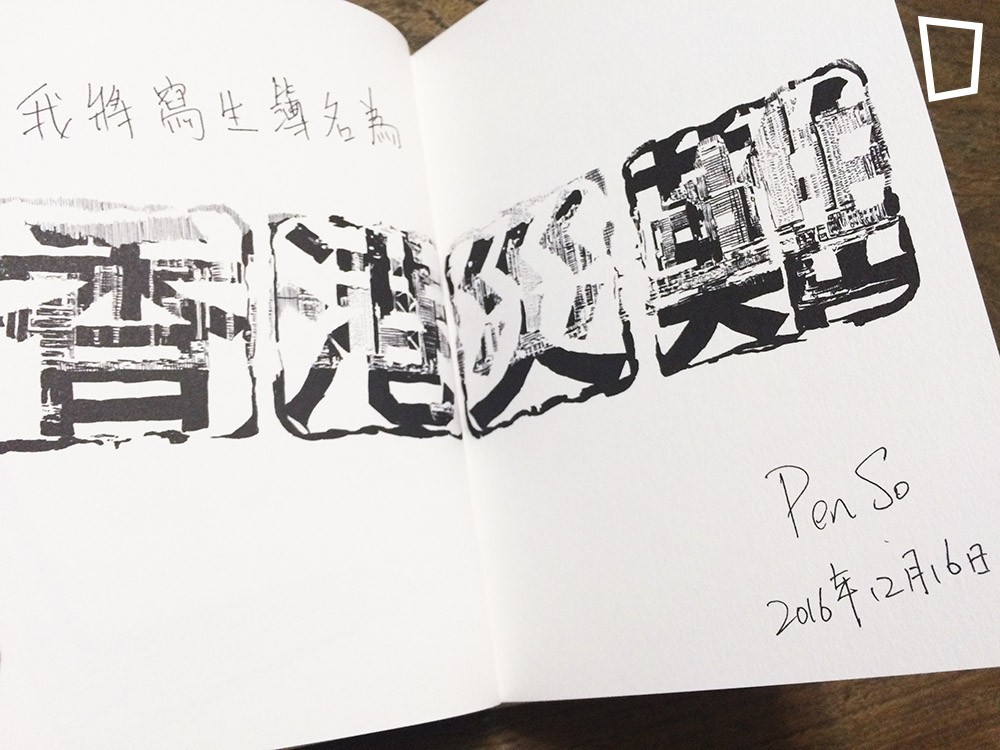 我將寫生簿名為
香港災難
Pen So
2016年12月16日